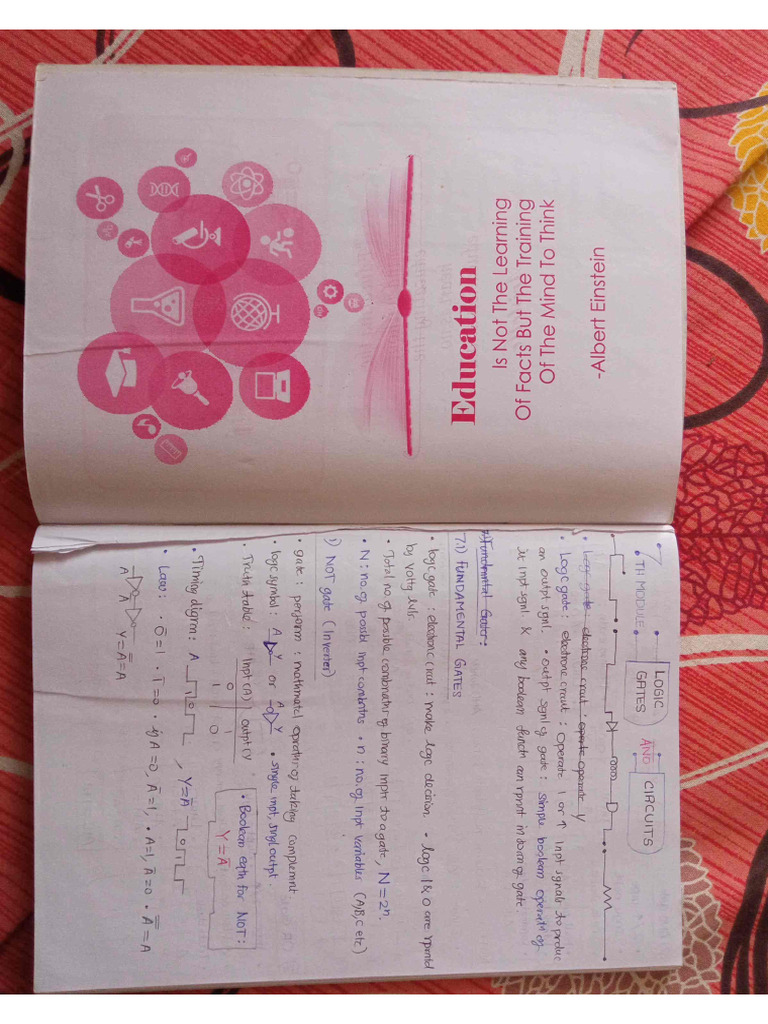 Education
Is Not The Learning
Of Facts But The Training
Of The Mind To Think
-Albert Einstein
7TH MODULE
LOGIC
GATES
AND
CIRCUITS
• Logic gate : electronc crcut : operate operate y
• Logic gate : electronc crcuit : operate 1 or ↑ Inpt signals to produc
an outpt sgnl. • outpt sgnl of gate : simple boolean operatn of
it inpt sgnl & any boolean functn can rprnt in using gate
7) Fundmental Gates :
7.1) FUNDAMENTAL GATES
• logic gate : electronic crcuit : make logic decision • logic 1 & 0 are rprntd
by voltg lvls.
• Total no of possible combnatns of binary inpts to a gate, N = 2ⁿ.
• N : no. of possbl inpt combntns • n : no. of inpt variables (A,B,C etc)
1) NOT gate (Inverter)
• gate : perform : mathmatcl opratn of taking complemnt
• logic symbol : A Y or A Y • single inpt, singl outpt
• Truth table : Inpt (A) outpt (Y)
0 1
1 0
• Boolean eqtn for NOT :
Y = Ā
• Timing digrm : A 0 1 0 , Y = Ā 1 0 1
• Law : • 0̅ = 1 • 1̅ = 0 • if A = 0, Ā = 1, • A = 1, Ā = 0 • A̿ = A
A Ā Y = A̿ = A